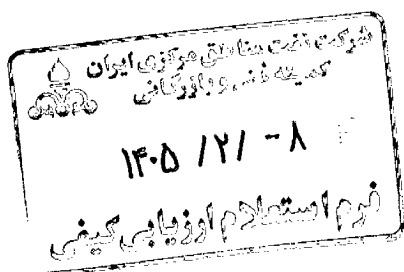 شرکت نفت مناطق مرکزی ایران
کمیته فنی و بازرگانی
۱۴۰۵ /۲/ -۸
فرم استعلام ارزیابی کیفی